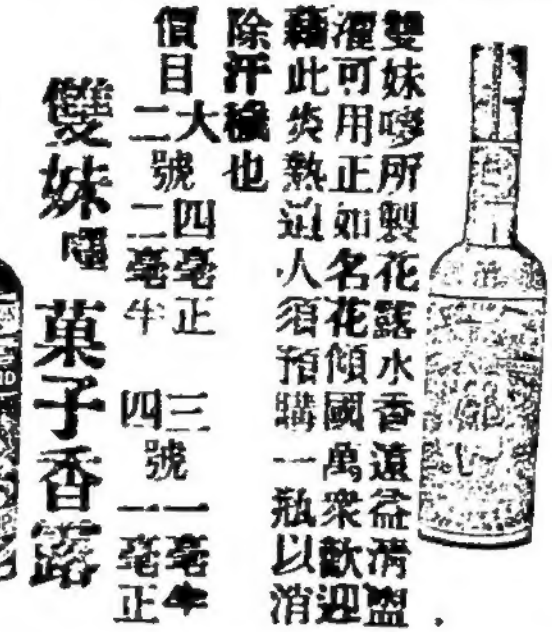 雙妹嘜所製花露水香遠益清盥
濯可用正如名花傾國萬衆歡迎
藉此炎熱逼人須預購一瓶以消
除汗穢也
價目 大號四毫正 三號一毫半
二號二毫半 四號一毫正
雙妹嘜 菓子香露